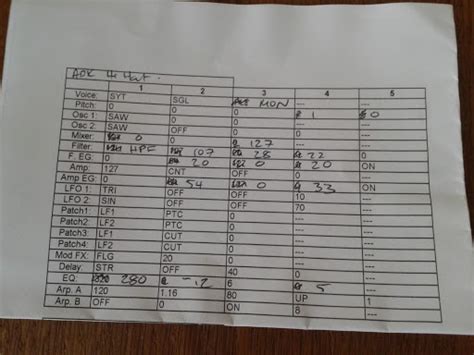 ADR Hi Hat.
1 2 3 4 5
Voice: SYT SGL MON ---
Pitch: 0 0 0 --- ---
Osc 1: SAW 0 0 1 0
Osc 2: SAW OFF 0 --- ---
Mixer: 0 0 127 --- ---
Filter: HPF 107 28 22 0
F. EG: 0 20 0 20 ON
Amp: 127 CNT --- --- ---
Amp EG: 0 54 0 33 ON
LFO 1: TRI OFF OFF 10 ---
LFO 2: SIN OFF OFF 70 ---
Patch1: LF1 PTC 0 --- ---
Patch2: LF2 PTC 0 --- ---
Patch3: LF1 CUT 0 --- ---
Patch4: LF2 CUT 0 --- ---
Mod FX: FLG 20 0 --- ---
Delay: STR OFF 40 --- ---
EQ: 280 -12 6 5 ---
Arp. A 120 1.16 80 UP 1
Arp. B OFF 0 ON 8 ---